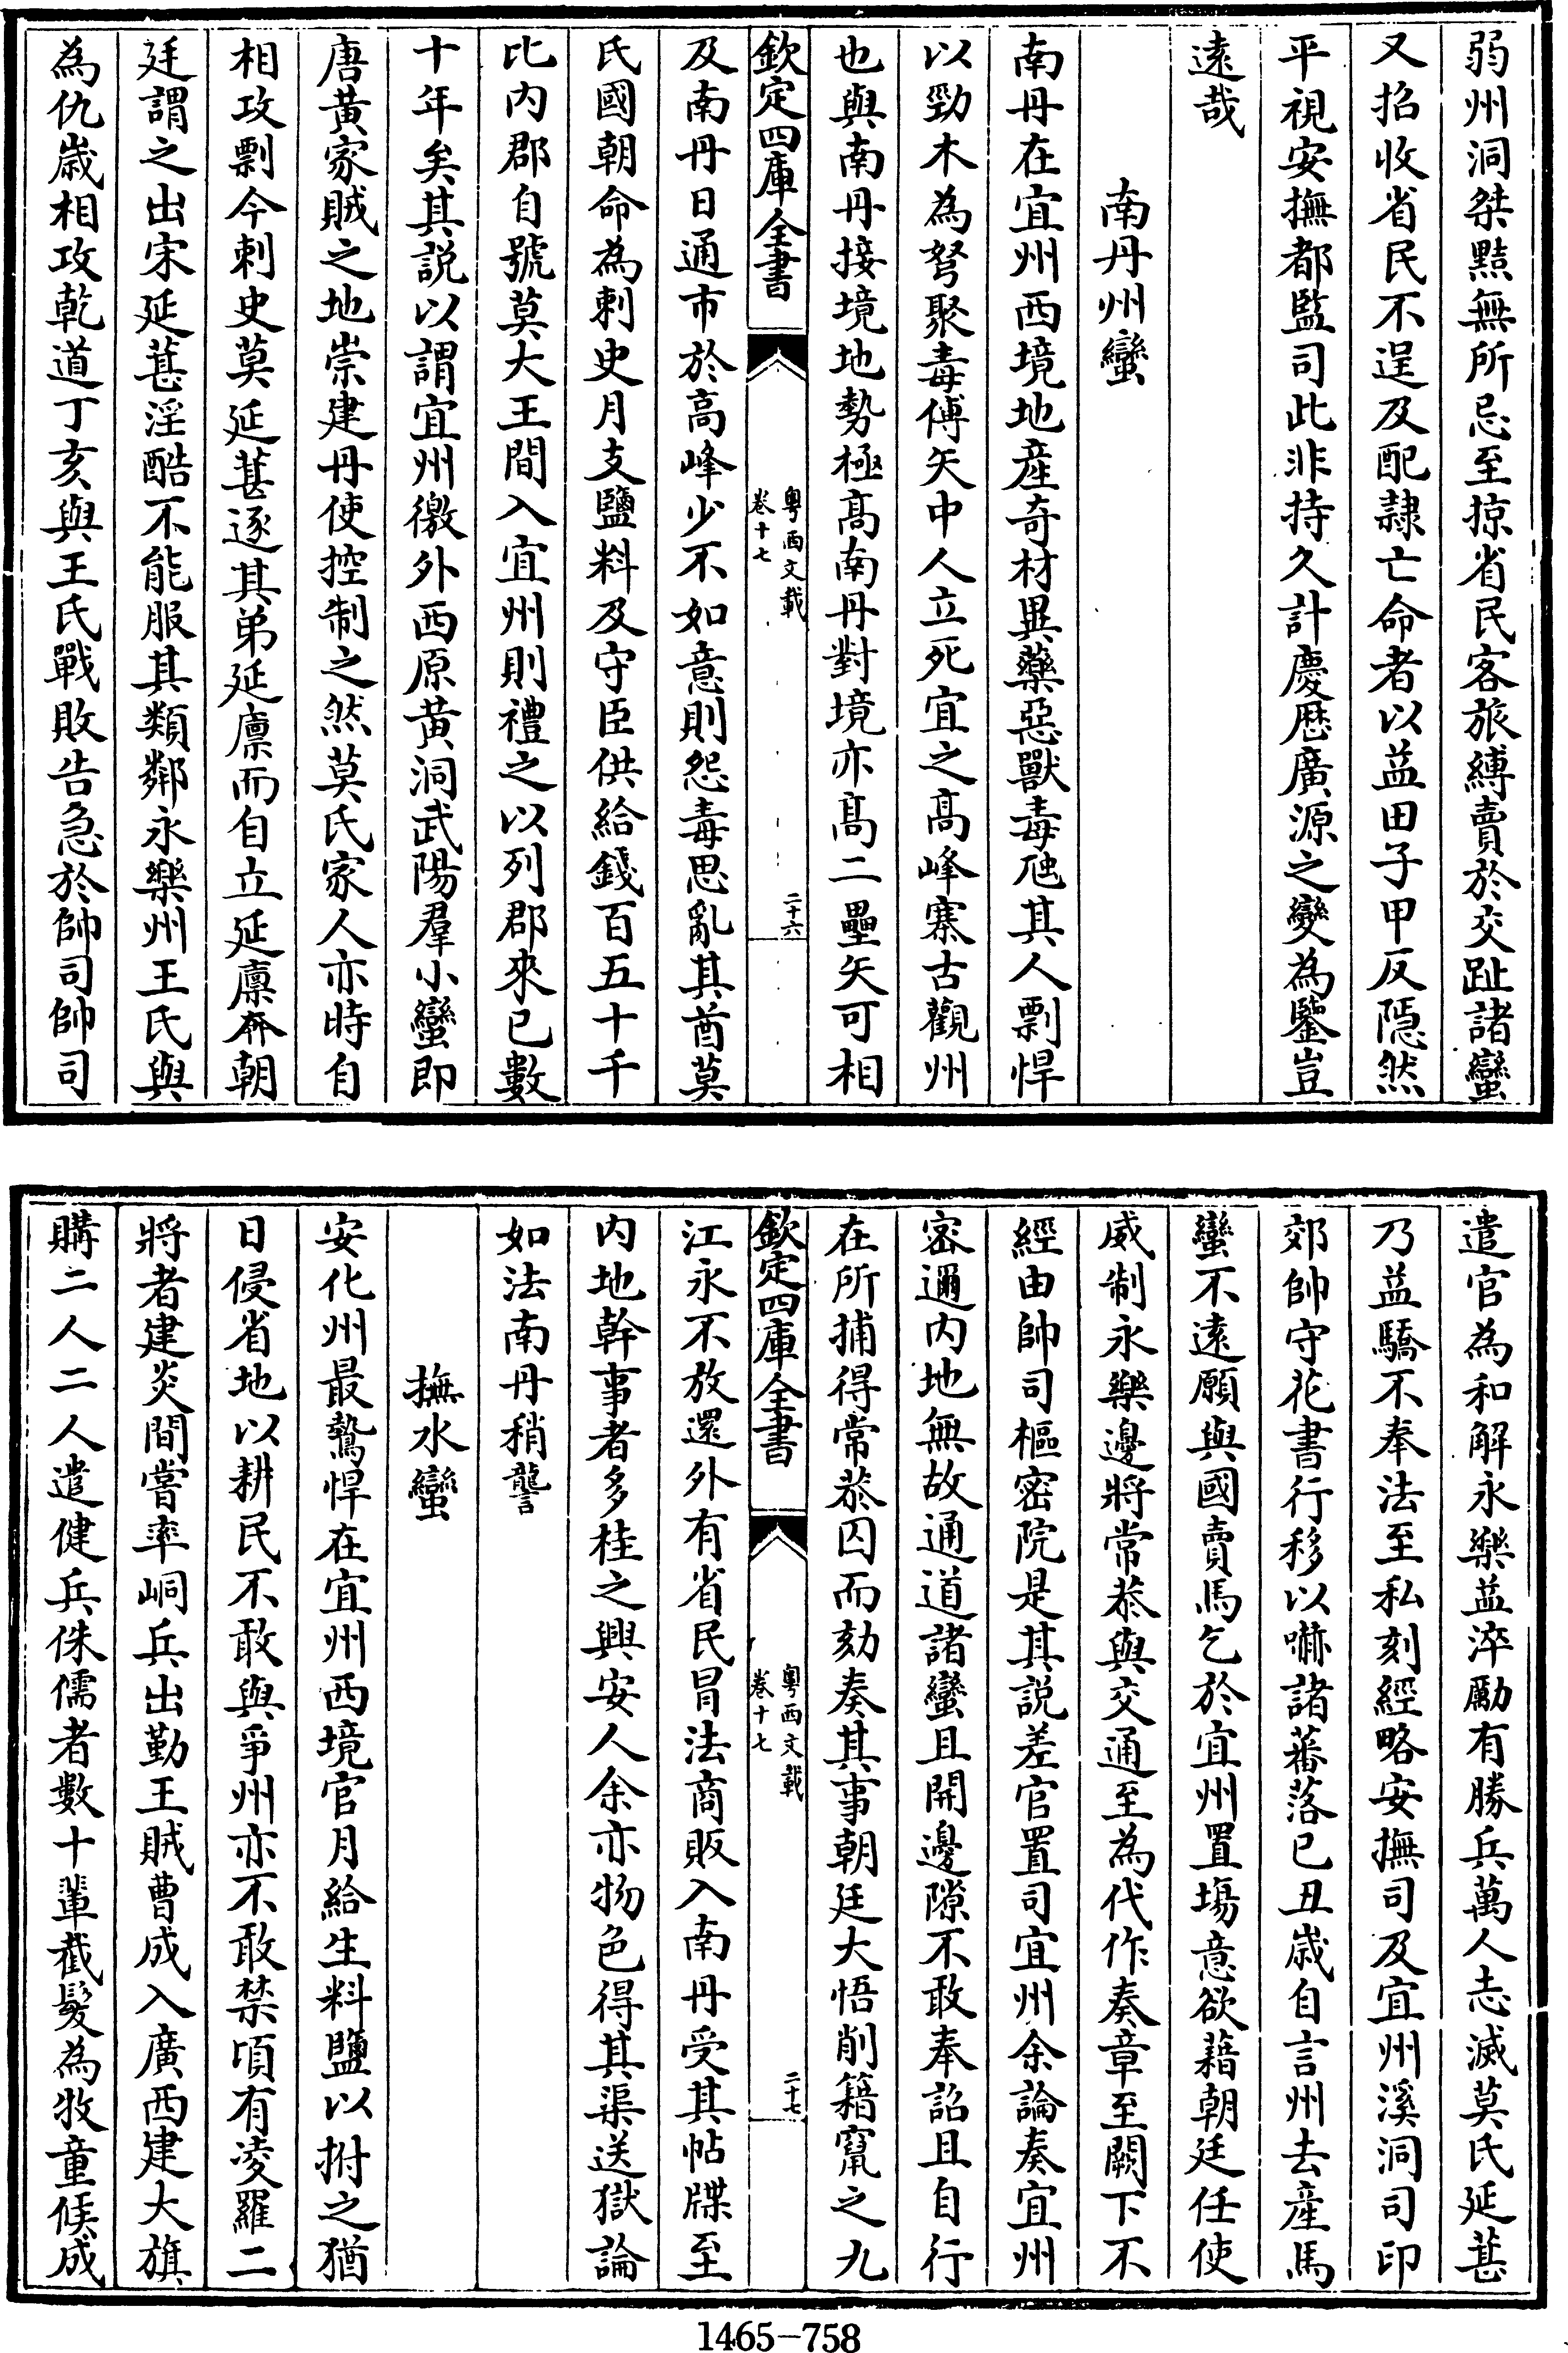 弱州洞桀黠無所忌至掠省民客旅縛賣於交趾諸蠻
又招收省民不逞及配隷亡命者以益田子甲反隠然
平視安撫都監司此非持久計慶厯廣源之變為鑒豈
逺哉
南丹州蠻
南丹在宜州西境地産奇材異藥惡獸毒虺其人剽悍
以勁木為弩聚毒傅矢中人立死宜之髙峰寨古觀州
也與南丹接境地勢極髙南丹對境亦髙二壘矢可相
欽定四庫全書
粤西文載
卷十七
二十六
及南丹日通市於高峰少不如意則怨毒思亂其酋莫
氏國朝命為刺史月支鹽料及守臣供給錢百五十千
比内郡自號莫大王間入宜州則禮之以列郡來已數
十年矣其説以謂宜州徼外西原黄洞武陽羣小蠻即
唐黄家賊之地崇建丹使控制之然莫氏家人亦時自
相攻剽今刺史莫延葚逐其弟延廪而自立延廪奔朝
廷謂之出宋延葚淫酷不能服其類鄰永樂州王氏與
為仇嵗相攻乾道丁亥與王氏戰敗告急於帥司帥司
遣官為和解永樂益淬勵有勝兵萬人志滅莫氏延葚
乃益驕不奉法至私刻經略安撫司及宜州溪洞司印
郊帥守花書行移以嚇諸蕃落已丑嵗自言州去産馬
蠻不逺願與國賣馬乞於宜州置塲意欲藉朝廷任使
威制永樂邊將常恭與交通至為代作奏章至闕下不
經由帥司樞密院是其説差官置司宜州余論奏宜州
密邇内地無故通道諸蠻且開邊隙不敢奉詔且自行
在所捕得常恭囚而劾奏其事朝廷大悟削籍竄之九
欽定四庫全書
粤西文載
卷十七
二十七
江永不放還外有省民冒法商販入南丹受其帖牒至
内地幹事者多桂之興安人余亦物色得其渠送獄論
如法南丹稍讋
撫水蠻
安化州最驁悍在宜州西境官月給生料鹽以拊之猶
日侵省地以耕民不敢與爭州亦不敢禁頃有凌羅二
將者建炎間嘗率峒兵出勤王賊曹成入廣西建大旗
購二人二人遣健兵侏儒者數十輩截髮為牧童候成
1465-758